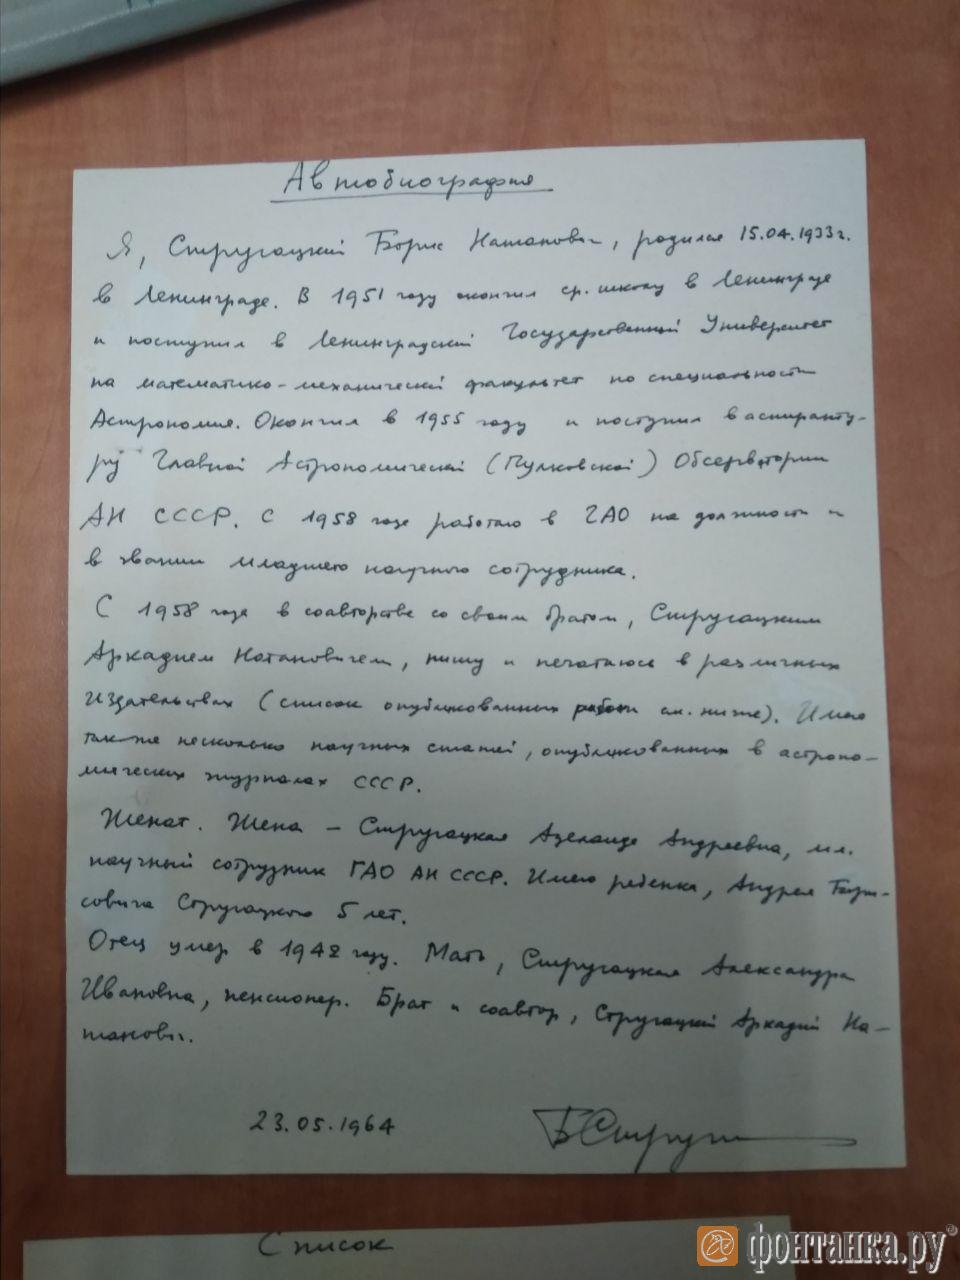 Автобиография
Я, Стругацкий Борис Натанович, родился 15.04.1933г.
в Ленинграде. В 1951 году окончил ср. школу в Ленинграде
и поступил в Ленинградский Государственный Университет
на математико-механический факультет по специальности
Астрономия. Окончил в 1955 году и поступил в аспиранту-
ру Главной Астрономической (Пулковской) Обсерватории
АН СССР. С 1958 года работаю в ГАО на должности и
в звании младшего научного сотрудника.
С 1958 года в соавторстве со своим братом, Стругацким
Аркадием Натановичем, пишу и печатаюсь в различных
издательствах (список опубликованных работ см. ниже). Имею
также несколько научных статей, опубликованных в астроно-
мических журналах СССР.
Женат. Жена – Стругацкая Аделаида Андреевна, мл.
научный сотрудник ГАО АН СССР. Имею ребенка, Андрея Бори-
совича Стругацкого 5 лет.
Отец умер в 1942 году. Мать, Стругацкая Александра
Ивановна, пенсионер. Брат и соавтор, Стругацкий Аркадий На-
танович.
23.05.1964 БСтруг
Список
фонтанка.ру